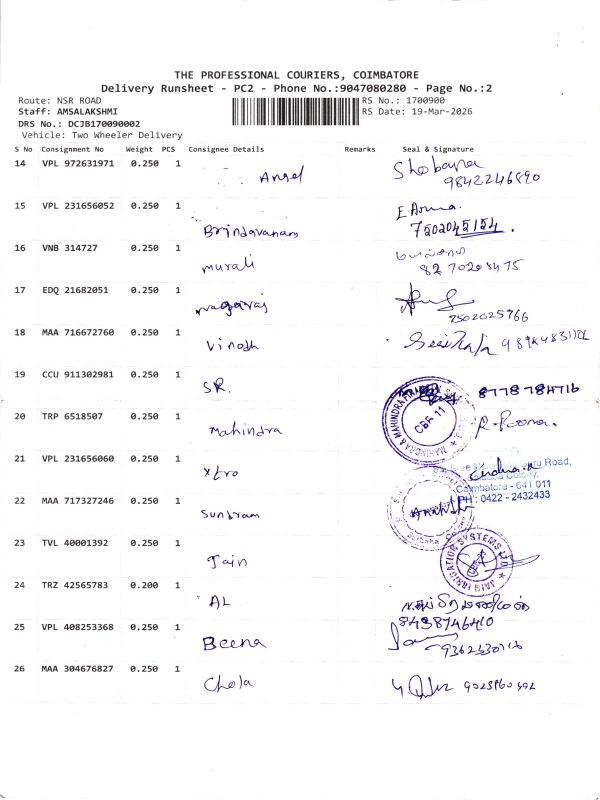 THE PROFESSIONAL COURIERS, COIMBATORE
Delivery Runsheet - PC2 - Phone No.:9047080280 - Page No.:2
Route: NSR ROAD
RS No.: 1700900
Staff: AMSALAKSHMI
RS Date: 19-Mar-2026
DRS No.: DCJB170090002
Vehicle: Two Wheeler Delivery
S No Consignment No Weight PCS Consignee Details Remarks Seal & Signature
14 VPL 972631971 0.250 1 Ansel Shobana
9842246890
15 VPL 231656052 0.250 1 Brindavanam E Aruna.
7502045154.
16 VNB 314727 0.250 1 murali
17 EDQ 21682051 0.250 1 nagaraj
7502025766
18 MAA 716672760 0.250 1 Vinoth
19 CCU 911302981 0.250 1 SR. 8778784716
20 TRP 6518507 0.250 1 Mahindra R. Poorna.
CBE 11
21 VPL 231656060 0.250 1 Xtro
Road,
Coimbatore - 641 011
PH : 0422 - 2432433
22 MAA 717327246 0.250 1 Sundram
23 TVL 40001392 0.250 1 Jain
JAIN IRRIGATION SYSTEMS LTD
24 TRZ 42565783 0.200 1 AL
8438746410
25 VPL 408253368 0.250 1 Beena
26 MAA 304676827 0.250 1 Chola